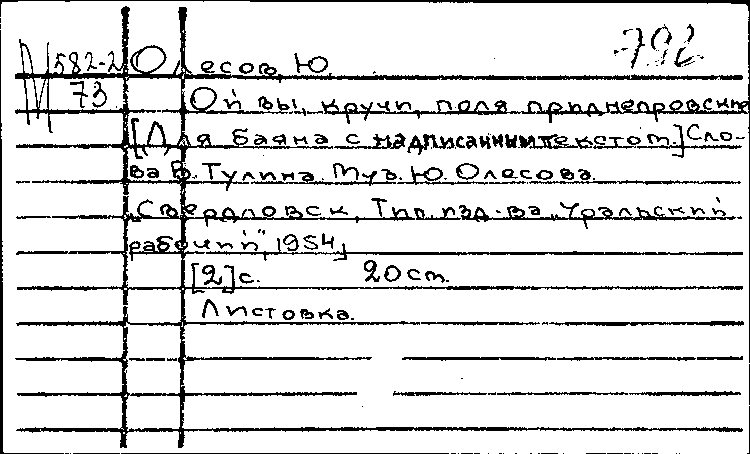 792
М 582-2 Олесов, Ю.
73 Ой вы, кручи, поля приднепровские
[Для баяна с надписанным текстом] Сло-
ва В. Тулина. Муз. Ю. Олесова.
Свердловск, Тип. изд-ва „Уральский
рабочий", 1954,
[2]с. 20 ст.
Листовка.